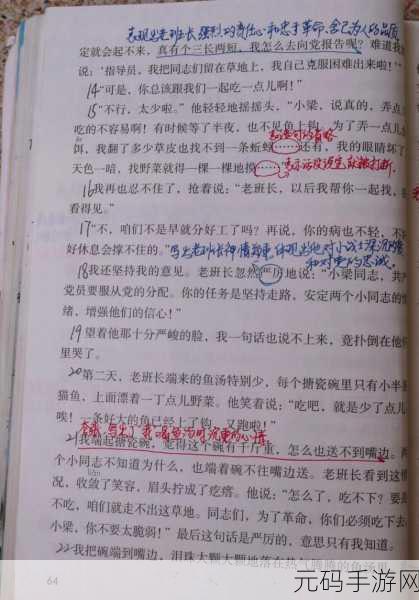 表现出老班长强烈的责任心和忠于革命、舍己为人的品质
定就会起不来,真有个三长两短,我怎么去向党报告呢?难道我
说:‘指导员,我把同志们留在草地上,我自己克服困难出来啦!’”
14“可是,你总该跟我们一起吃一点儿啊!”
15“不行,太少啦。”他轻轻地摇摇头,“小梁,说真的,弄点
吃的不容易啊!有时候等了半夜,也不见鱼上钩。为了弄一点儿
饵,我翻了多少草皮也找不到一条蚯蚓……还有,我的眼睛坏了
天色一暗,找野菜就得一棵一棵地摸……”
16我再也忍不住了,抢着说:“老班长,以后我帮你一起找,
看得见。”
17“不,咱们不是早就分好工了吗?再说,你的病也不轻,不
好休息会撑不住的。”
和对党的忠诚。
18我还坚持我的意见。老班长忽然严厉地说:“小梁同志,共
党员要服从党的分配。你的任务是坚持走路,安定两个小同志的
绪,增强他们的信心!”
19望着他那十分严峻的脸,我一句话也说不上来,竟扑倒在他
里哭了。
20第二天,老班长端来的鱼汤特别少,每个搪瓷碗里只有小半
猫鱼,上面漂着一丁点儿野菜。他笑着说:“吃吧,就是少了点儿
唉!一条好大的鱼已经上了钩,又跑啦!”
21我端起搪瓷碗,觉得这个碗有千斤重,怎么也送不到嘴边。两
个小同志不知道为什么,也端着碗不往嘴边送。老班长看到这情
况,收敛了笑容,眉头拧成了疙瘩。他说:“怎么了,吃不下?要是
不吃,咱们就走不出这草地。同志们,为了革命,你们必须吃下去
小梁,你不要太脆弱!”最后这句话是严厉的,意思只有我知道。
22我把碗端到嘴边,泪珠大颗大颗地落在热气腾腾的鱼汤里
64
元码手游网